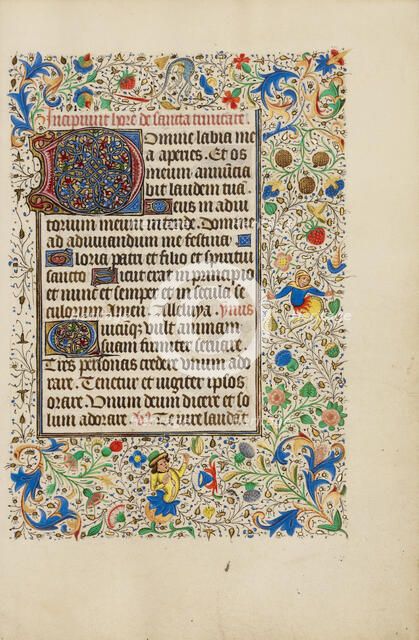 Incipiunt hore de sancta trinitate.
Domine labia me
a aperies. Et os
meum annūcia
bit laudem tuā.
Deus in adiu
torium meum intende. Domine
ad adiuuandum me festina.
Gloria patri et filio et spiritui
sancto Sicut erat in principio
et nunc et semper et in secula se
culorum Amen. Alleluya. Ymnus
Quicūq; vult animam
suam firmiter seruare.
Tres personas credere Unum ado
rare. Tenetur et iugiter ipsos
orare. Unum deum dicere et so
lum adorare. Te iure laudāt